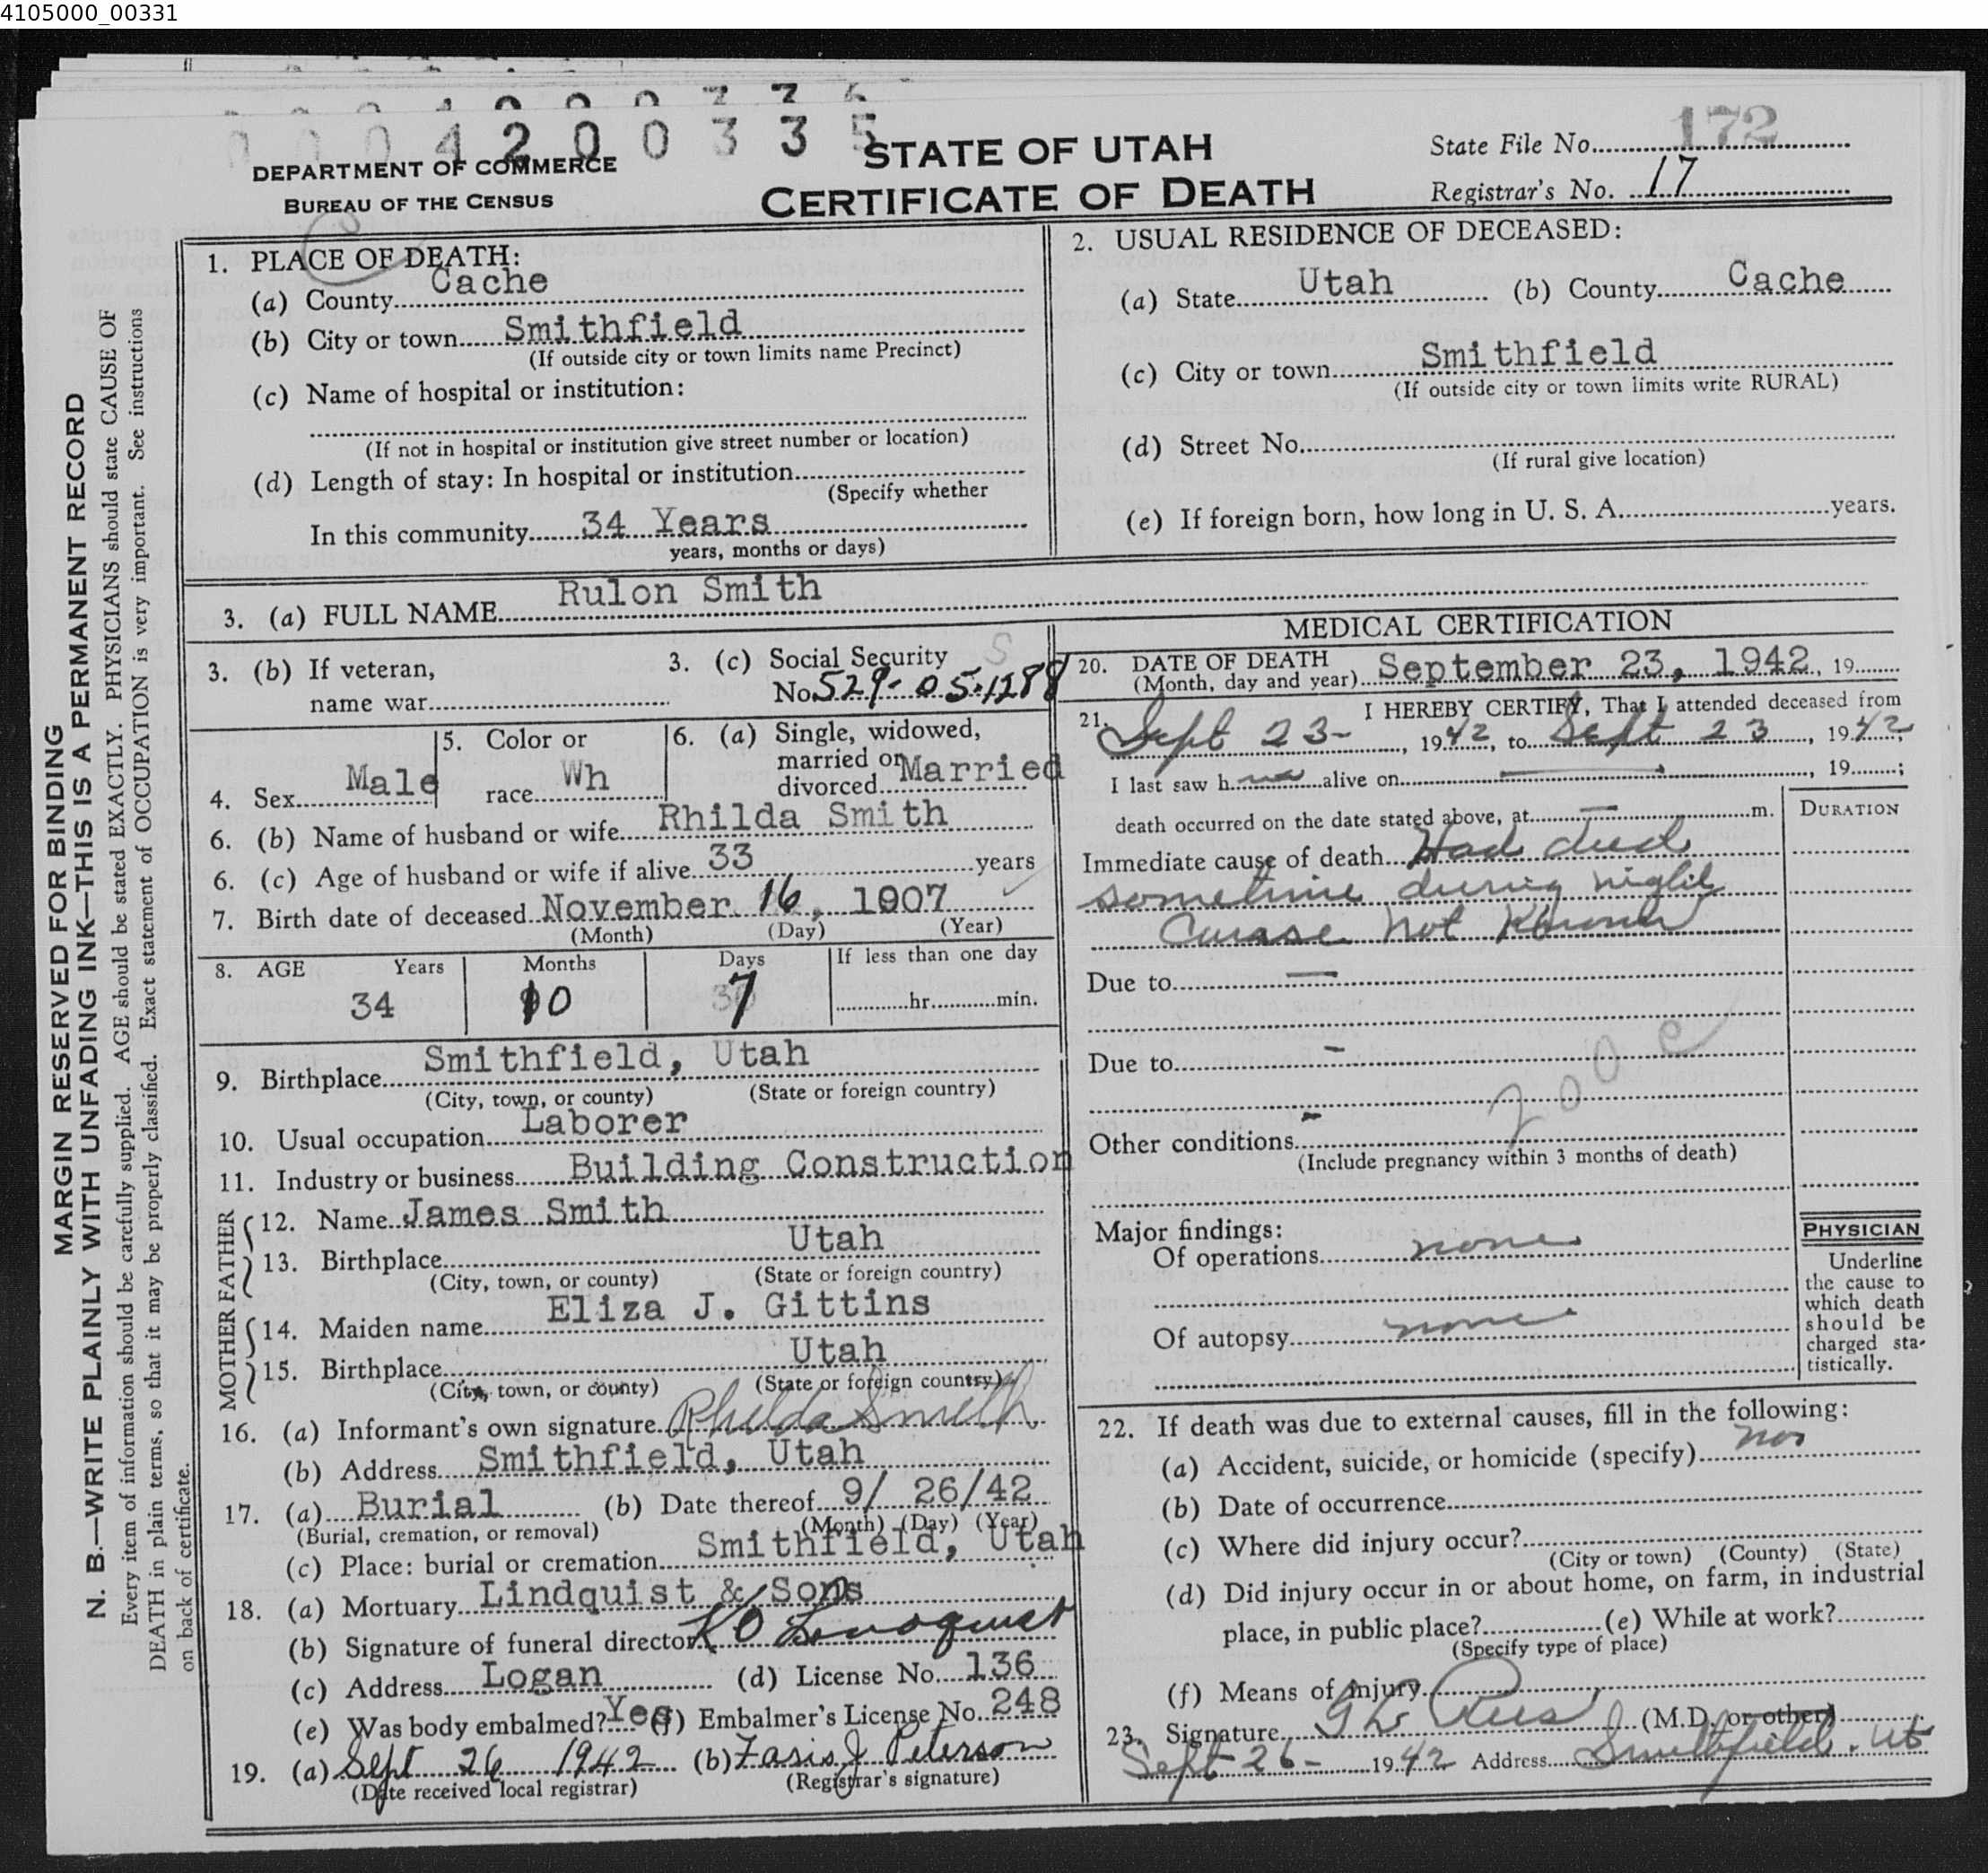 4105000_00331
0004200335
DEPARTMENT OF COMMERCE
BUREAU OF THE CENSUS
STATE OF UTAH
CERTIFICATE OF DEATH
State File No. 172
Registrar's No. 17
MARGIN RESERVED FOR BINDING
N. B.—WRITE PLAINLY WITH UNFADING INK—THIS IS A PERMANENT RECORD
Every item of information should be carefully supplied. AGE should be stated EXACTLY. PHYSICIANS should state CAUSE OF
DEATH in plain terms, so that it may be properly classified. Exact statement of OCCUPATION is very important. See instructions
on back of certificate.
1. PLACE OF DEATH:
(a) County Cache
(b) City or town Smithfield
(If outside city or town limits name Precinct)
(c) Name of hospital or institution:
(If not in hospital or institution give street number or location)
(d) Length of stay: In hospital or institution
(Specify whether
In this community 34 Years
years, months or days)
2. USUAL RESIDENCE OF DECEASED:
(a) State Utah (b) County Cache
(c) City or town Smithfield
(If outside city or town limits write RURAL)
(d) Street No.
(If rural give location)
(e) If foreign born, how long in U. S. A. years.
3. (a) FULL NAME Rulon Smith
3. (b) If veteran,
name war
3. (c) Social Security
No. 529-05-1288
4. Sex Male
5. Color or
race Wh
6. (a) Single, widowed,
married or
divorced Married
6. (b) Name of husband or wife Rhilda Smith
6. (c) Age of husband or wife if alive 33 years
7. Birth date of deceased November 16, 1907
(Month) (Day) (Year)
8. AGE Years Months Days If less than one day
34 10 7 hr. min.
9. Birthplace Smithfield, Utah
(City, town, or county) (State or foreign country)
10. Usual occupation Laborer
11. Industry or business Building Construction
FATHER
12. Name James Smith
13. Birthplace Utah
(City, town, or county) (State or foreign country)
MOTHER
14. Maiden name Eliza J. Gittins
15. Birthplace Utah
(City, town, or county) (State or foreign country)
16. (a) Informant's own signature Rhilda Smith
(b) Address Smithfield, Utah
17. (a) Burial (b) Date thereof 9/ 26/42
(Burial, cremation, or removal) (Month) (Day) (Year)
(c) Place: burial or cremation Smithfield, Utah
18. (a) Mortuary Lindquist & Sons
(b) Signature of funeral director K O Lindquist
(c) Address Logan (d) License No. 136
(e) Was body embalmed? Yes (f) Embalmer's License No. 248
19. (a) Sept 26 1942 (b) Peterson
(Date received local registrar) (Registrar's signature)
MEDICAL CERTIFICATION
20. DATE OF DEATH
(Month, day and year) September 23, 1942, 19
21. I HEREBY CERTIFY, That I attended deceased from
Sept 23-, 1942, to Sept 23, 1942;
I last saw h alive on —, 19;
death occurred on the date stated above, at — m.
DURATION
Immediate cause of death Had died
sometime during night
Cause not Known
Due to —
Due to -
200 c
Other conditions -
(Include pregnancy within 3 months of death)
Major findings:
Of operations none
Of autopsy none
PHYSICIAN
Underline
the cause to
which death
should be
charged sta-
tistically.
22. If death was due to external causes, fill in the following:
(a) Accident, suicide, or homicide (specify)
(b) Date of occurrence
(c) Where did injury occur?
(City or town) (County) (State)
(d) Did injury occur in or about home, on farm, in industrial
place, in public place? (e) While at work?
(Specify type of place)
(f) Means of injury
23. Signature G L Rees (M.D. or other)
Sept 26- 1942 Address Smithfield, Ut